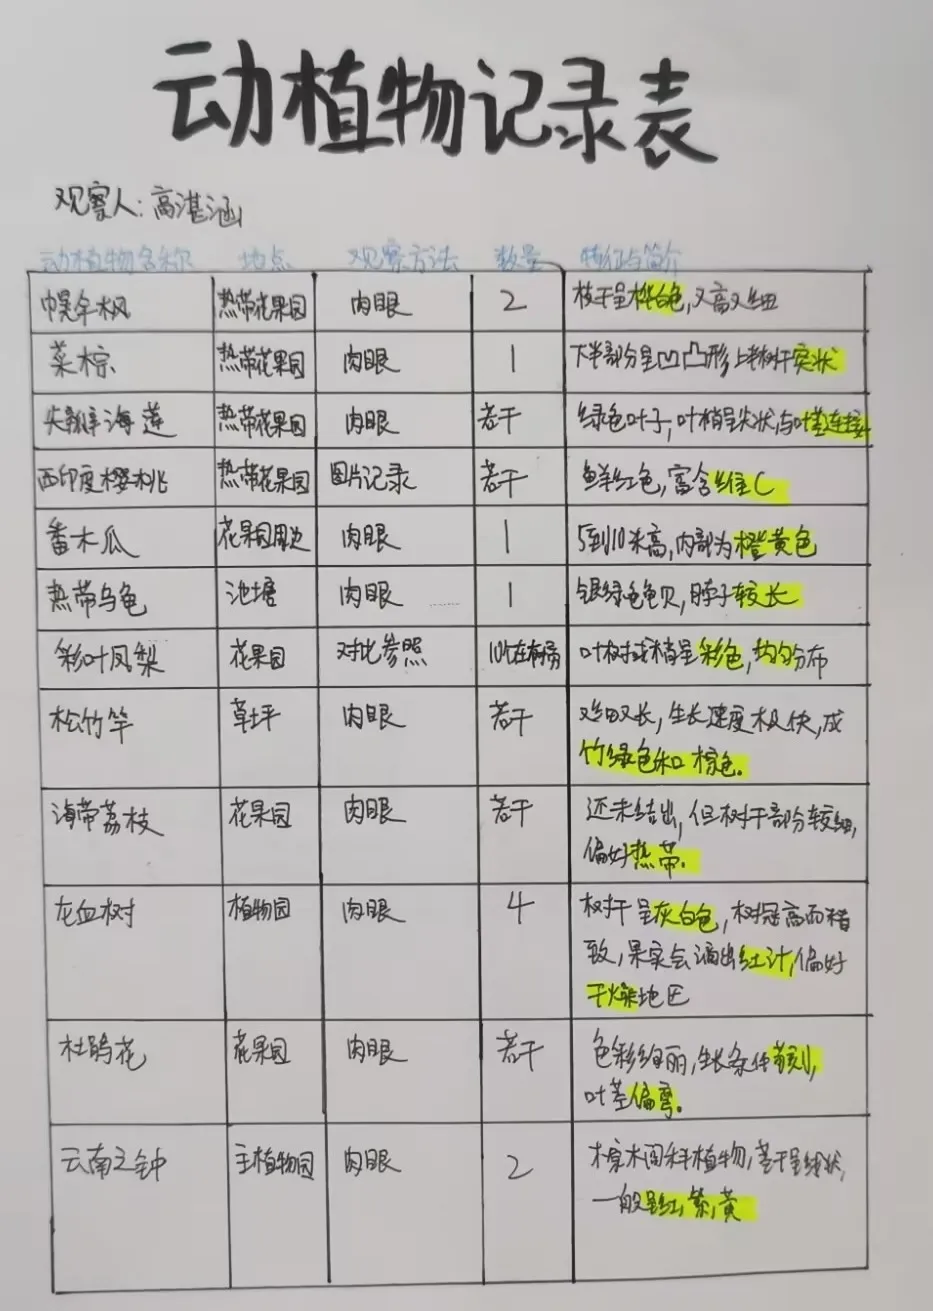 动植物记录表
观察人:高湛涵
动植物名称 地点 观察方法 数量 特征与简介
幌伞枫 热带花果园 肉眼 2 枝干呈桦白色,又高又细
菜棕 热带花果园 肉眼 1 下半部分呈凹凸形上半树干实状
尖瓣海莲 热带花果园 肉眼 若干 绿色叶子,叶梢呈尖状,与叶茎连接
西印度樱桃 热带花果园 图片记录 若干 鲜红色,富含维C
番木瓜 花果园周边 肉眼 1 5到10米高,内部为橙黄色
热带乌龟 池塘 肉眼 1 银绿色龟贝,脖子较长
彩叶凤梨 花果园 对比参照 10个左右 叶树或梢呈彩色,均匀分布
松竹竿 草坪 肉眼 若干 又细又长,生长速度极快,成
竹绿色和棕色.
海带荔枝 花果园 肉眼 若干 还未结出,但树干部分较细,
偏好热带.
龙血树 植物园 肉眼 4 树干呈灰白色,树冠高而精
致,果实会滴出红汁,偏好
干燥地区
杜鹃花 花果园 肉眼 若干 色彩绚丽,生长条件苛刻,
叶茎偏弯.
云南之钟 主植物园 肉眼 2 木棕木阁科植物,茎干呈线状,
一般呈红,紫,黄